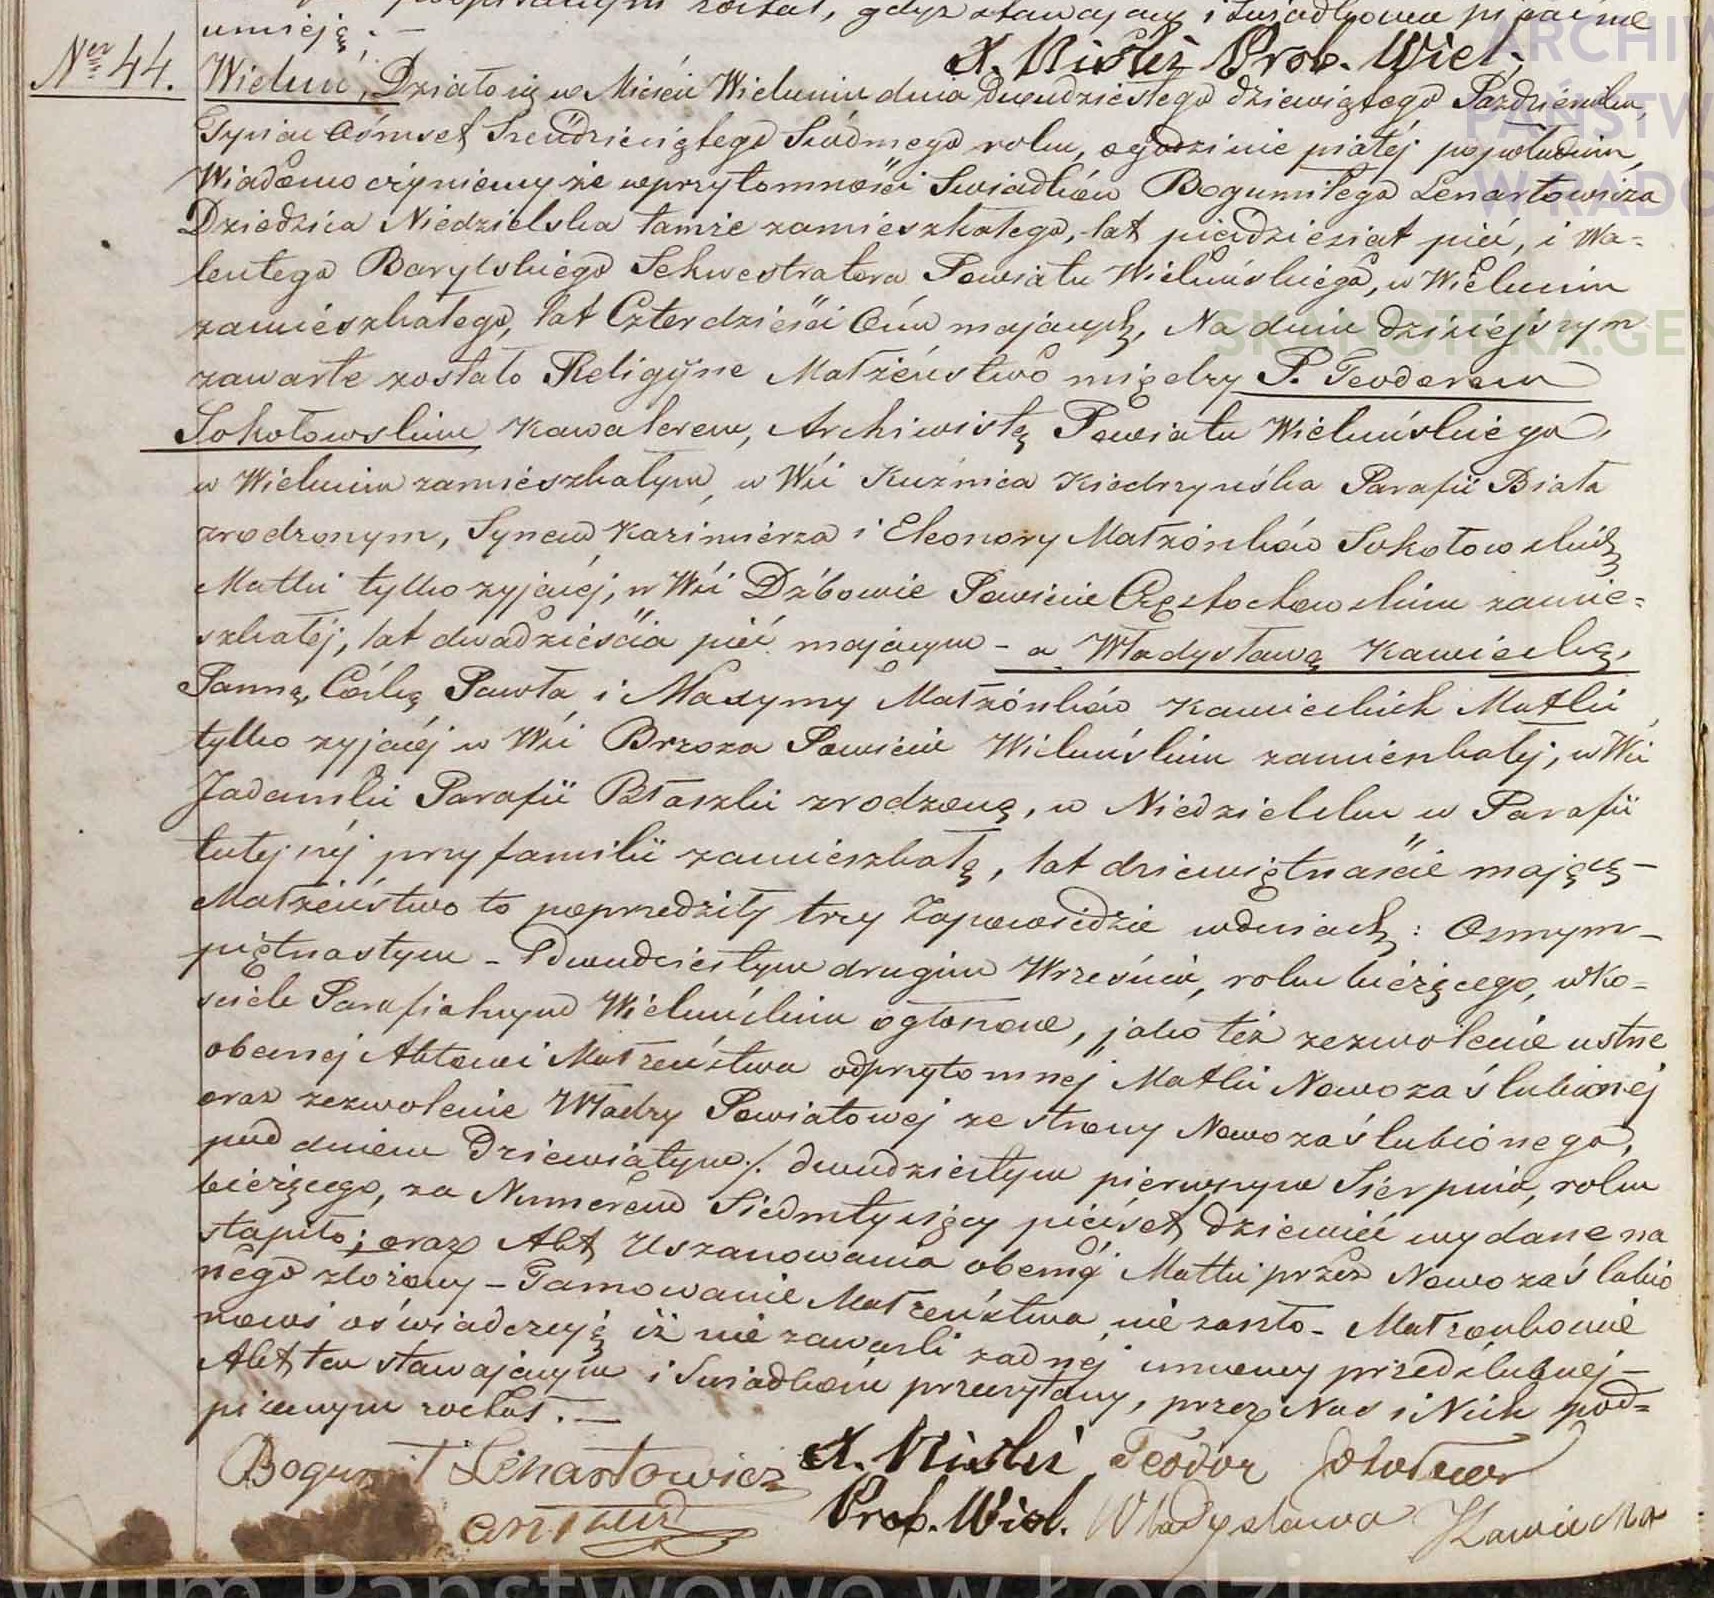 umieją. —
X. Nitski Prob. Wiel.
Ner 44. Wieluń, Działo się w Mieście Wieluniu dnia dwudziestego dziewiątego Października
Tysiąc Ośmset Sześćdziesiątego Siódmego roku, o godzinie piątej popołudniu,
Wiadomo czyniemy że w przytomności Świadków Bogumiłego Lenartowicza
Dziedzica Niedzielska tamże zamieszkałego, lat pięćdziesiąt pięć, i Wa=
lentego Barylskiego Sekwestratora Powiatu Wieluńskiego, w Wieluniu
zamieszkałego, lat Czterdzieści Ośm mających, Na dniu dzisiejszym
zawarte zostało Religijne Małżeństwo między P. Teodorem
Sokołowskim Kawalerem, Archiwistą Powiatu Wieluńskiego,
w Wieluniu zamieszkałym, w Wsi Kuźnica Kiedrzyńska Parafii Biała
zrodzonym, Synem Kazimierza i Eleonory Małżonków Sokołowskich
Matki tylko żyjącej, w Wsi Dźbowie Powiecie Częstochowskim zamie=
szkałej, lat dwadzieścia pięć mającym – a Władysławą Kamiecką,
Panną, Córką Pawła i Maxymy Małżonków Kamieckich Matki
tylko żyjącej w Wsi Brzoza Powiecie Wieluńskim zamieszkałej, w Wsi
Jadamki Parafii Błaszki zrodzoną, w Niedzielsku w Parafii
tutejszej przy familii zamieszkałą, lat dziewiętnaście mającą –
Małżeństwo to poprzedziły trzy Zapowiedzie w dniach: Osmym –
piętnastym – Dwudziestym drugim Września, roku bieżącego, w Ko=
ściele Parafialnym Wieluńskim ogłoszone, jako też zezwolenie ustne
obecnej Aktowi Małżeństwa przytomnej Matki Nowozaślubionej
oraz zezwolenie Władzy Powiatowej ze strony Nowozaślubionego,
pod dniem Dziewiątym /. dwudziestym pierwszym Sierpnia, roku
bieżącego, za Numerem Siedmtysięcy pięćset dziewięć wydane na
stąpiło; oraz Akt Uszanowania obecnej Matki przez Nowozaślubio
nego złożony – Tamowanie Małżeństwa nie zaszło – Małżonkowie
nowi oświadczyją iż nie zawarli żadnej umowy przedślubnej –
Akt ten stawającym i Świadkom przeczytany, przez Nas i Nich pod=
pisanym został. —
Bogumił Lenartowicz X. Nitski Teodor Sokołowski
Prob. Wiel. Władysława Kamiecka